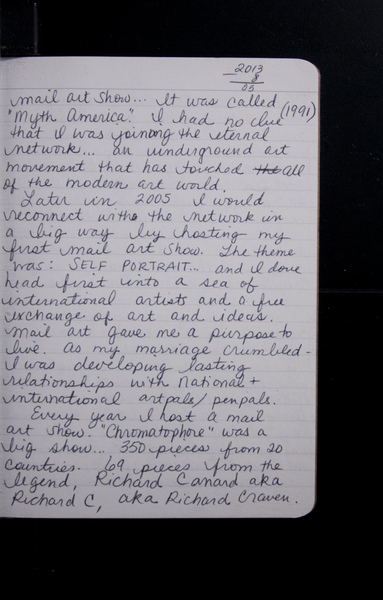 2013
8
05
mail art show... It was called
"Myth America." I had no clue (1991)
that I was joining the eternal
network... an underground art
movement that has touched the all
of the modern art world.
Later in 2005 I would
reconnect with the network in
a big way by hosting my
first mail art show. The theme
was: SELF PORTRAIT... and I dove
head first into a sea of
international artists and a free
exchange of art and ideas.
Mail art gave me a purpose to
live. As my marriage crumbled -
I was developing lasting
relationships with national +
international artpals/penpals.
Every year I host a mail
art show. "Chromatophore" was a
big show... 350 pieces from 20
countries. 69 pieces from the
legend, Richard Canard aka
Richard C, aka Richard Craven.